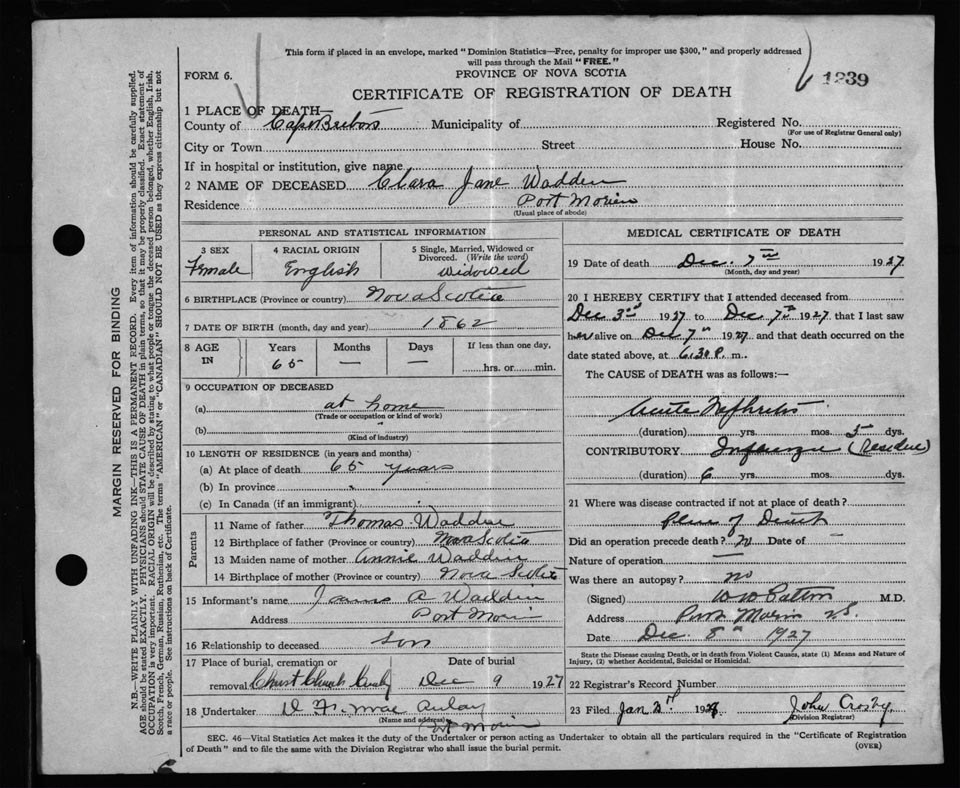 This form if placed in an envelope, marked "Dominion Statistics—Free, penalty for improper use $300," and properly addressed
will pass through the Mail "FREE."
FORM 6.
PROVINCE OF NOVA SCOTIA
1239
CERTIFICATE OF REGISTRATION OF DEATH
1 PLACE OF DEATH—
County of Cape Breton Municipality of Registered No.
(For use of Registrar General only)
City or Town Street House No.
If in hospital or institution, give name
2 NAME OF DECEASED Clara Jane Wadden
Residence Port Morien
(Usual place of abode)
PERSONAL AND STATISTICAL INFORMATION
3 SEX
Female
4 RACIAL ORIGIN
English
5 Single, Married, Widowed or
Divorced. (Write the word)
Widowed
6 BIRTHPLACE (Province or country) Nova Scotia
7 DATE OF BIRTH (month, day and year) 1862
8 AGE
IN
Years
65
Months
—
Days
—
If less than one day,
hrs. or min.
9 OCCUPATION OF DECEASED
(a) at home
(Trade or occupation or kind of work)
(b) "
(Kind of industry)
10 LENGTH OF RESIDENCE (in years and months)
(a) At place of death 65 years
(b) In province "
(c) In Canada (if an immigrant)
Parents
11 Name of father Thomas Wadden
12 Birthplace of father (Province or country) Nova Scotia
13 Maiden name of mother Annie Wadden
14 Birthplace of mother (Province or country) Nova Scotia
15 Informant's name James A Wadden
Address Port Morien
16 Relationship to deceased son
17 Place of burial, cremation or
removal Christ Church
Date of burial
Dec 9 1927
18 Undertaker
(Name and address)
Pt Morien
MEDICAL CERTIFICATE OF DEATH
19 Date of death Dec. 7th 1927
(Month, day and year)
20 I HEREBY CERTIFY that I attended deceased from
Dec 3rd 1927 to Dec 7th 1927 that I last saw
her alive on Dec 7th 1927 and that death occurred on the
date stated above, at 6.30 P. m.
The CAUSE of DEATH was as follows:—
Acute Nephritis
(duration) yrs. mos. 5 dys.
CONTRIBUTORY Influenza (Residue)
(duration) 6 yrs. mos. dys.
21 Where was disease contracted if not at place of death?
place of Death
Did an operation precede death? No Date of —
Nature of operation —
Was there an autopsy? no
(Signed) W W Patton M.D.
Address Port Morien N.S.
Date Dec. 8th 1927
State the Disease causing Death, or in death from Violent Causes, state (1) Means and Nature of
Injury, (2) whether Accidental, Suicidal or Homicidal.
22 Registrar's Record Number
23 Filed Jan 2nd 192 John Crosby
(Division Registrar)
SEC. 46—Vital Statistics Act makes it the duty of the Undertaker or person acting as Undertaker to obtain all the particulars required in the "Certificate of Registration
of Death" and to file the same with the Division Registrar who shall issue the burial permit.
(OVER)
MARGIN RESERVED FOR BINDING
N.B.—WRITE PLAINLY WITH UNFADING INK—THIS IS A PERMANENT RECORD. Every item of information should be carefully supplied.
AGE should be stated EXACTLY. PHYSICIANS should STATE CAUSE OF DEATH in plain terms, so that it may be properly classified. Exact statement of
OCCUPATION is very important. RACIAL ORIGIN will be described by stating to what people or tongue the deceased person belonged, whether English, Irish,
Scotch, French, German, Russian, Ruthenian, etc. The terms "AMERICAN" or "CANADIAN" SHOULD NOT BE USED as they express citizenship but not
a race or people. See instructions on back of Certificate.